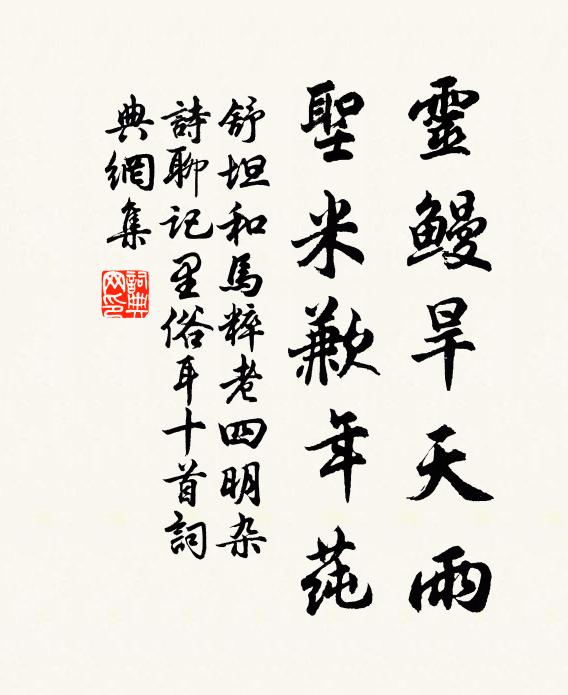 靈鰻旱天雨
聖米歉年蒓
舒坦和馬粹老四明杂
詩聊記里俗耳十首詞
典網集
詞典網印